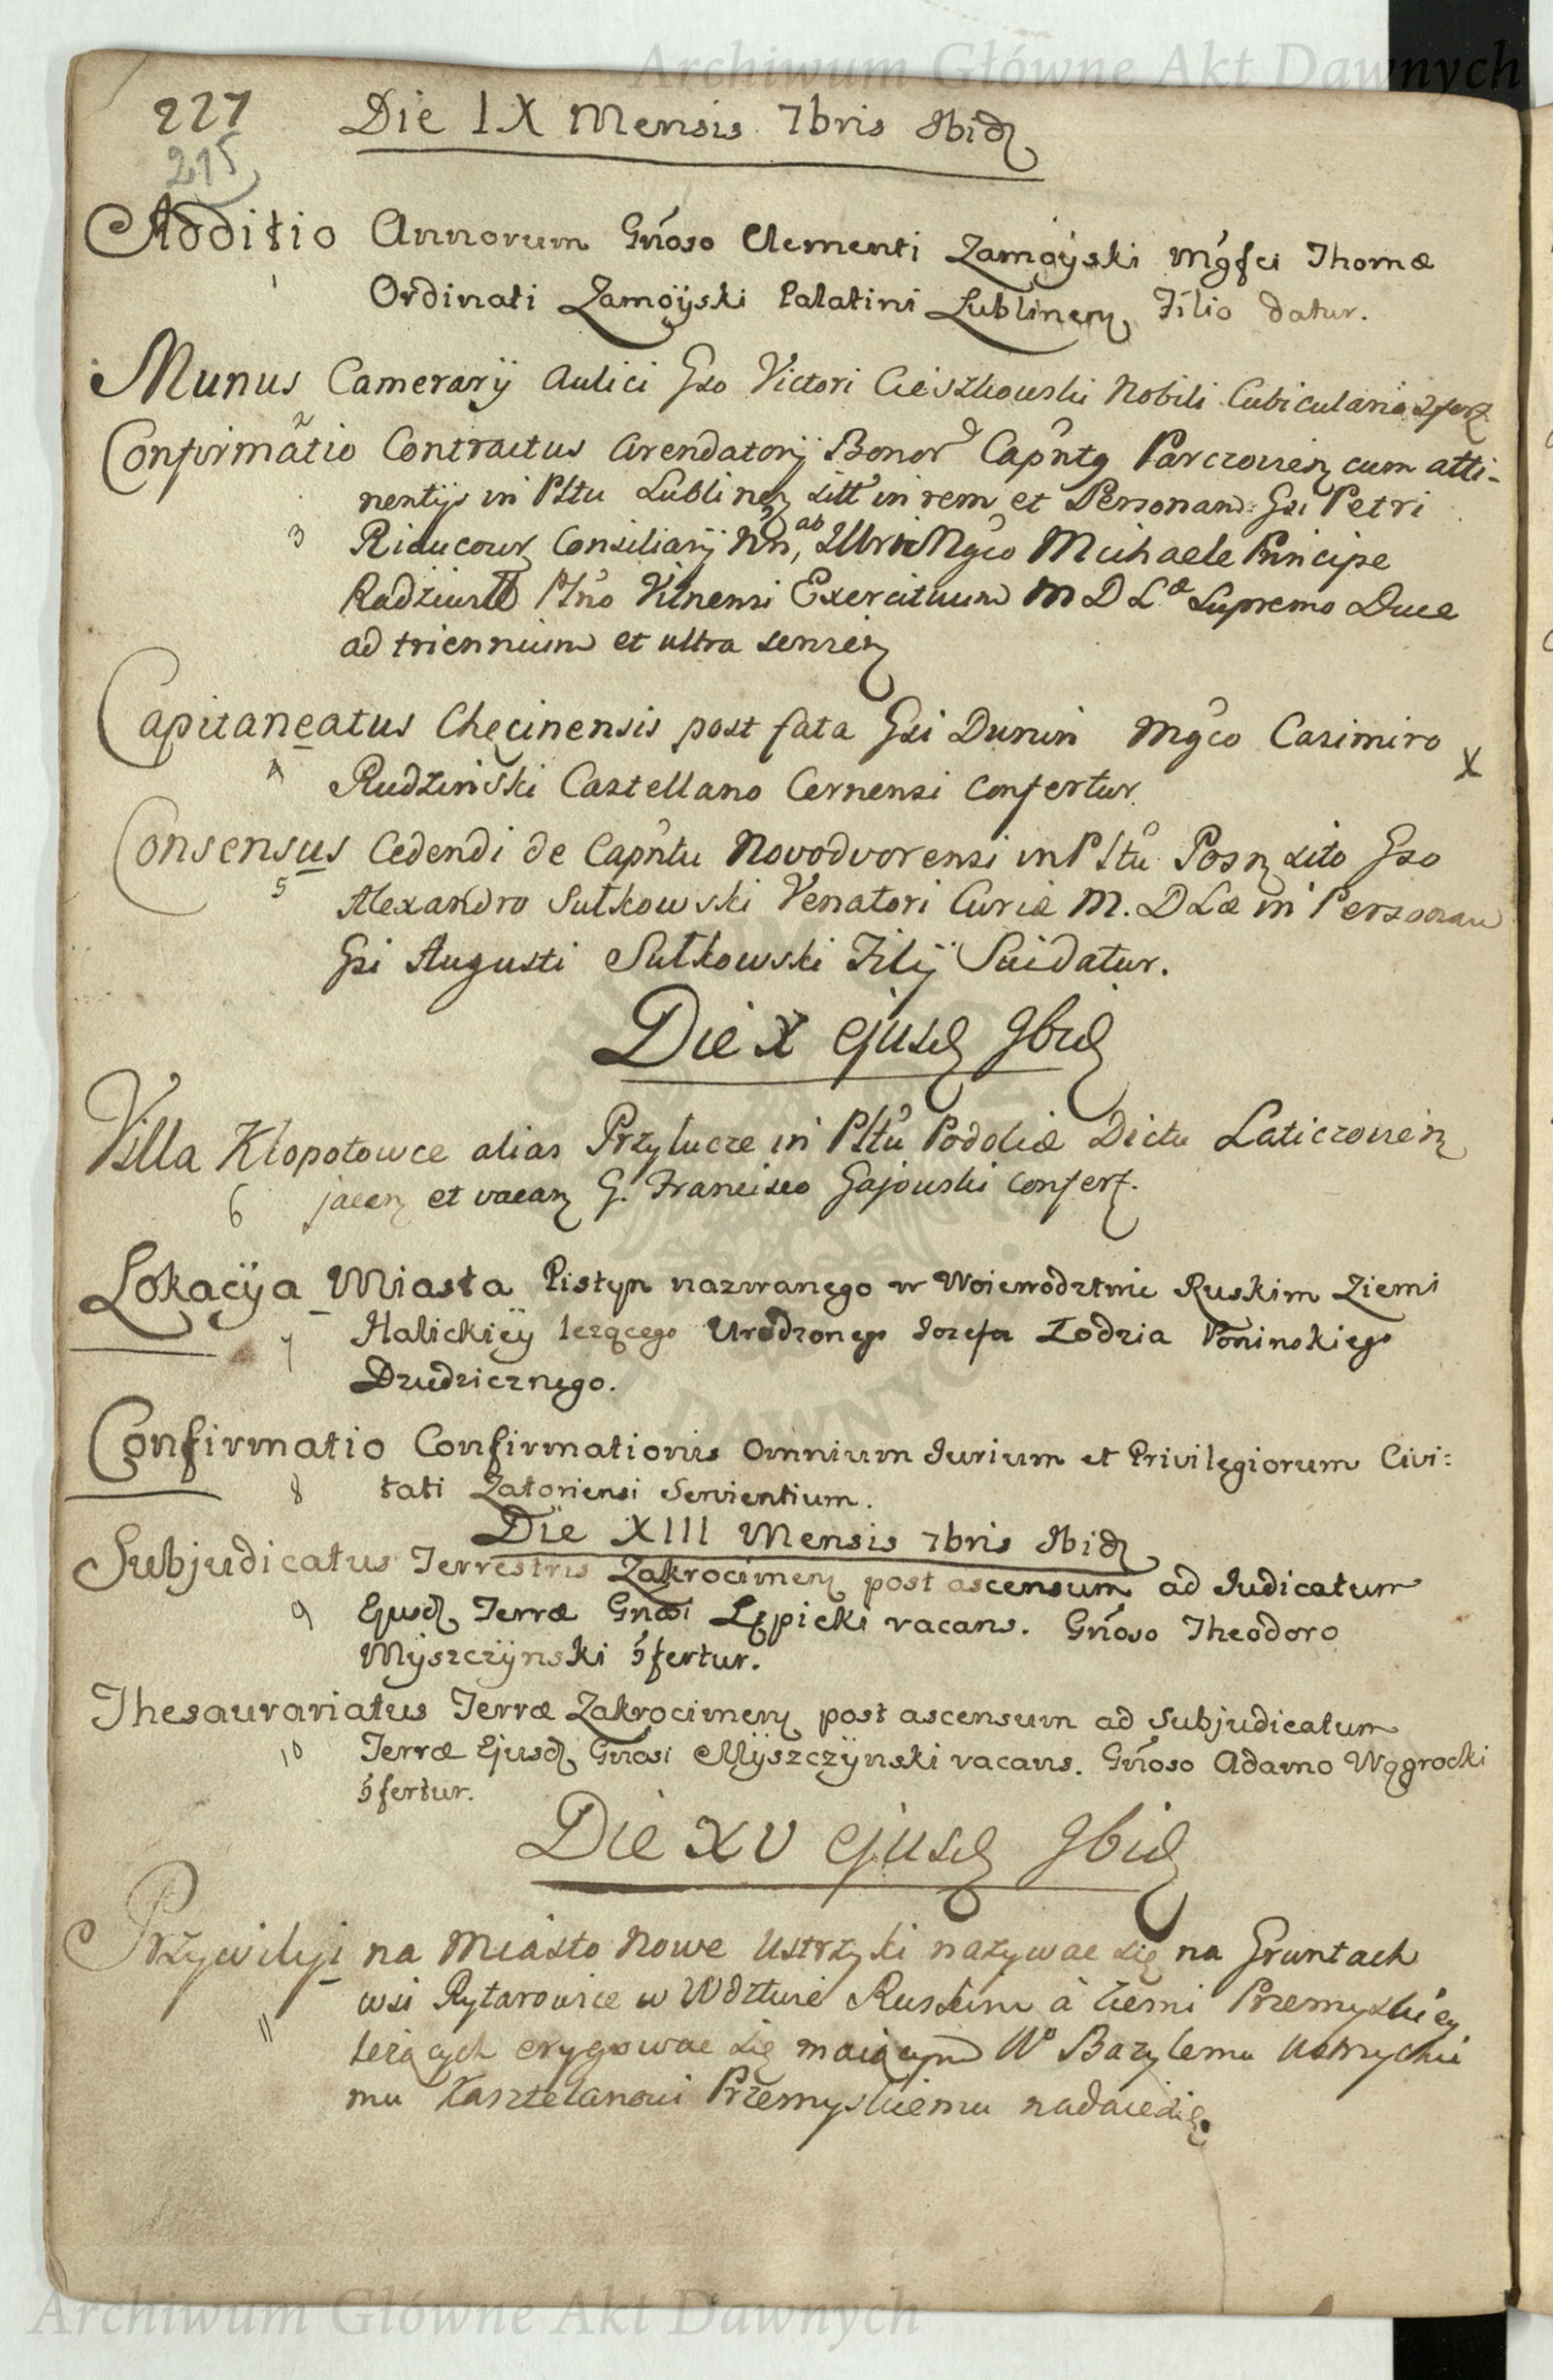 Archiwum Główne Akt Dawnych
227
215
Die IX Mensis 7bris Ibidꝫ
Additio Annorum Gńoso Clementi Zamoÿski Mgfci Thomæ
1
Ordinati Zamoÿski Palatini Lublinenꝫ Filio datur.
Munus Camerarÿ Aulici Gso Victori Cieszkowski Nobili Cubiculario
2
Confirmatio Contractus Arendatorÿ Bonor Capntꝯ Parczovienꝫ cum atti-
nentÿs in Pltu Lublinenꝫ sitt in rem et Personam Gsi Petri
3 Riaucourꝫ Consiliarÿ Nri, ab Illmo Mgco Michaele Principe
Radziwiłł Plno Vilnensi Exercituum M D L Supremo Duce
ad triennium et ultra servienꝫ
Capitaneatus Chęcinensis post fata Gsi Dunin Mgco Casimiro X
4 Rudzinski Castellano Cernensi Confertur.
Consensus Cedendi de Capntu Novodvorensi in Pltu Posnꝫ sito Gso
5 Alexandro Sułkowski Venatori Curiæ M. D Læ in Personam
Gsi Augusti Sułkowski Filÿ Sui datur.
Die X ejusdꝫ Ibidꝫ
Villa Kłopotowce alias Przyłucze in Pltu Podoliæ Dictu Laticzovienꝫ
6 jacenꝫ et vacanꝫ G. Francisco Gajowski Confertꝫ.
Lokacÿa Miasta Pistyn nazwanego w Woiewodztwie Ruskim Ziemi
7 Halickiëy leżącego Urodzonego Jozefa Łodzia Poninskiego
Dziedzicznego.
Confirmatio Confirmationis Omnium Jurium et Privilegiorum Civi:
8 tati Zatoriensi Servientium.
Die XIII Mensis 7bris Ibidꝫ
Subjudicatus Terrestris Zakrocimenꝫ post ascensum ad Judicatum
9 Ejusdꝫ Terræ Gnosi Lępicki vacans. Gńoso Theodoro
Mÿszczÿnski ɔ́fertur.
Thesaurariatus Terræ Zakrocimenꝫ post ascensum ad Subjudicatum
10 Terræ Ejusdꝫ Gnosi Mÿszczÿnski vacans. Gńoso Adamo Wągrocki
ɔ́fertur.
Die XV ejusdꝫ Ibidꝫ
Przywiley na Miasto Nowe Ustrzyki nazywae się na Gruntach
wsi Rytarowice w Wdztwie Ruskim à Ziemi Przemyskiey
11
leżących erygowae się maiącym Wo Bazylemu Ustrzycki
mu Kasztelanowi Przemyskiemu nadaie się.
Archiwum Główne Akt Dawnych